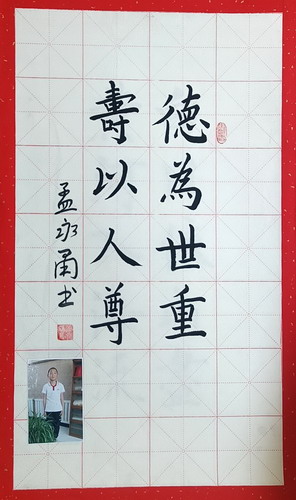 德為世重
壽以人尊
孟永甬书